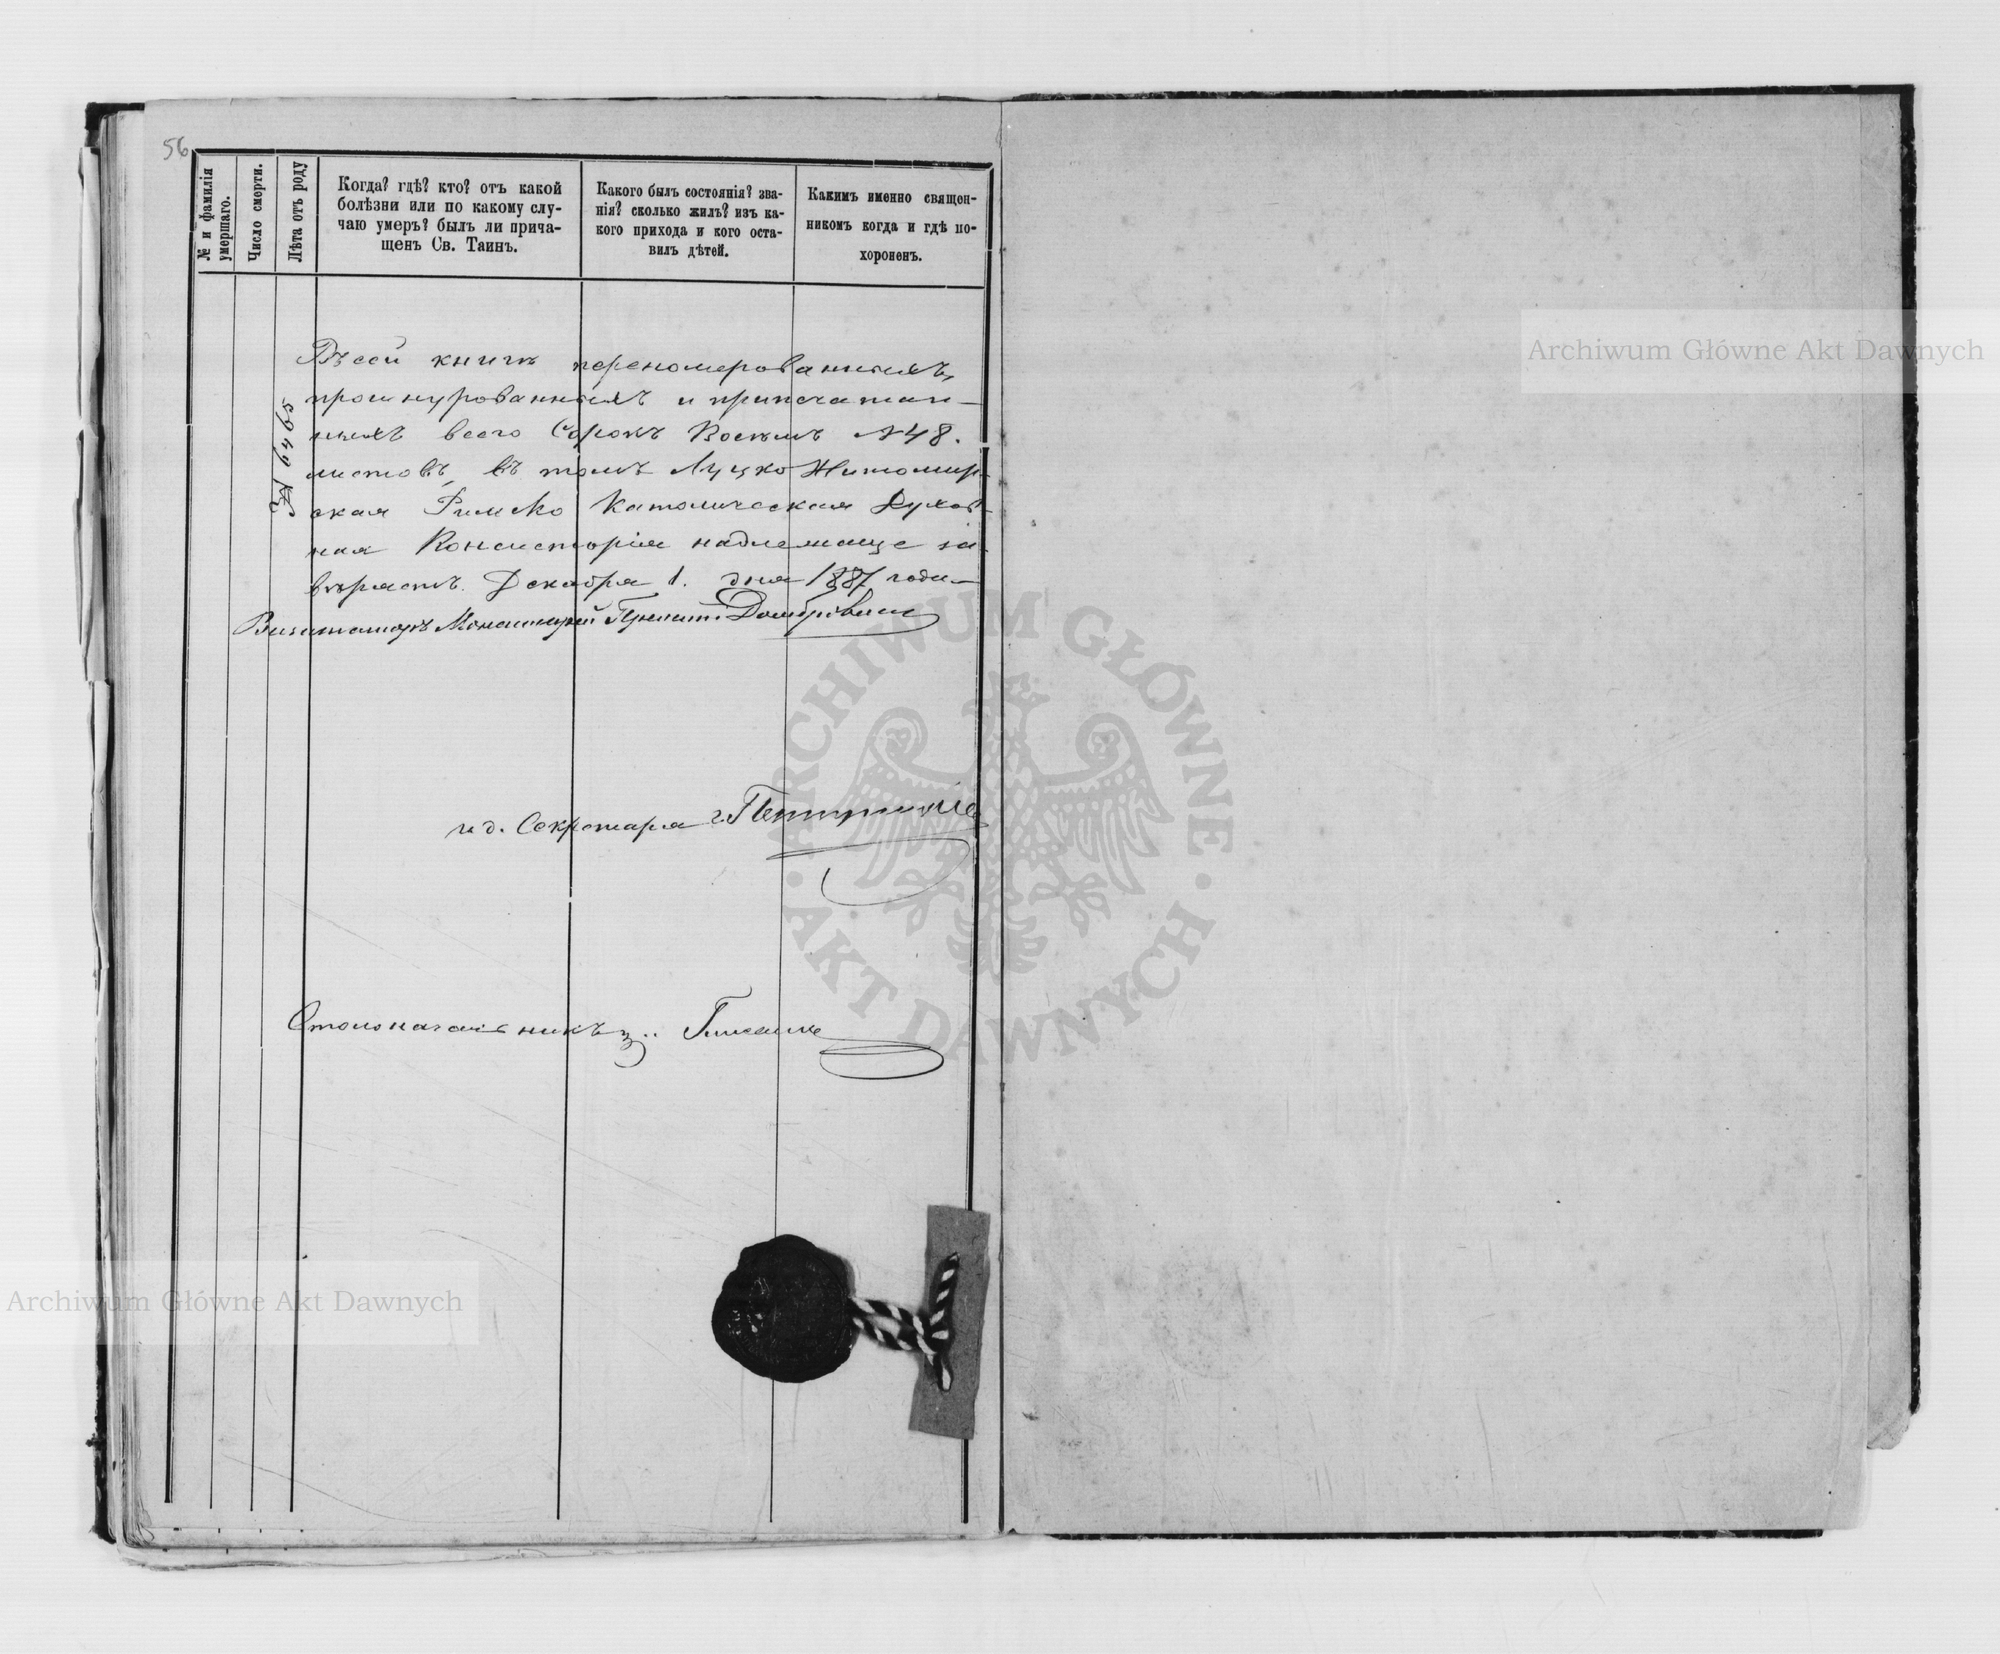 56
№ и фамилія
умершаго.
Число смерти.
Лѣта отъ роду
Когда? гдѣ? кто? отъ какой
болѣзни или по какому слу-
чаю умеръ? былъ ли прича-
щенъ Св. Таинъ.
Какого былъ состоянія? зва-
нія? сколько жилъ? изъ ка-
кого прихода и кого оста-
вилъ дѣтей.
Какимъ именно священ-
никомъ когда и гдѣ по-
хороненъ.
Въ сей книгѣ перономерованныхъ,
прошнурованныхъ и припечатан-
ныхъ всего Сорокъ Восемь №48.
листовъ, въ томъ Луцко Житомир-
ская Римско Католическая Духов-
ная Консисторія надлежаще за-
вѣряетъ. Декабря 1. дня 1887 года
Визитаторъ Монастырей
и д. Секретаря
Столоначальникъ
Archiwum Główne Akt Dawnych
Archiwum Główne Akt Dawnych
ARCHIWUM GŁÓWNE · AKT DAWNYCH ·